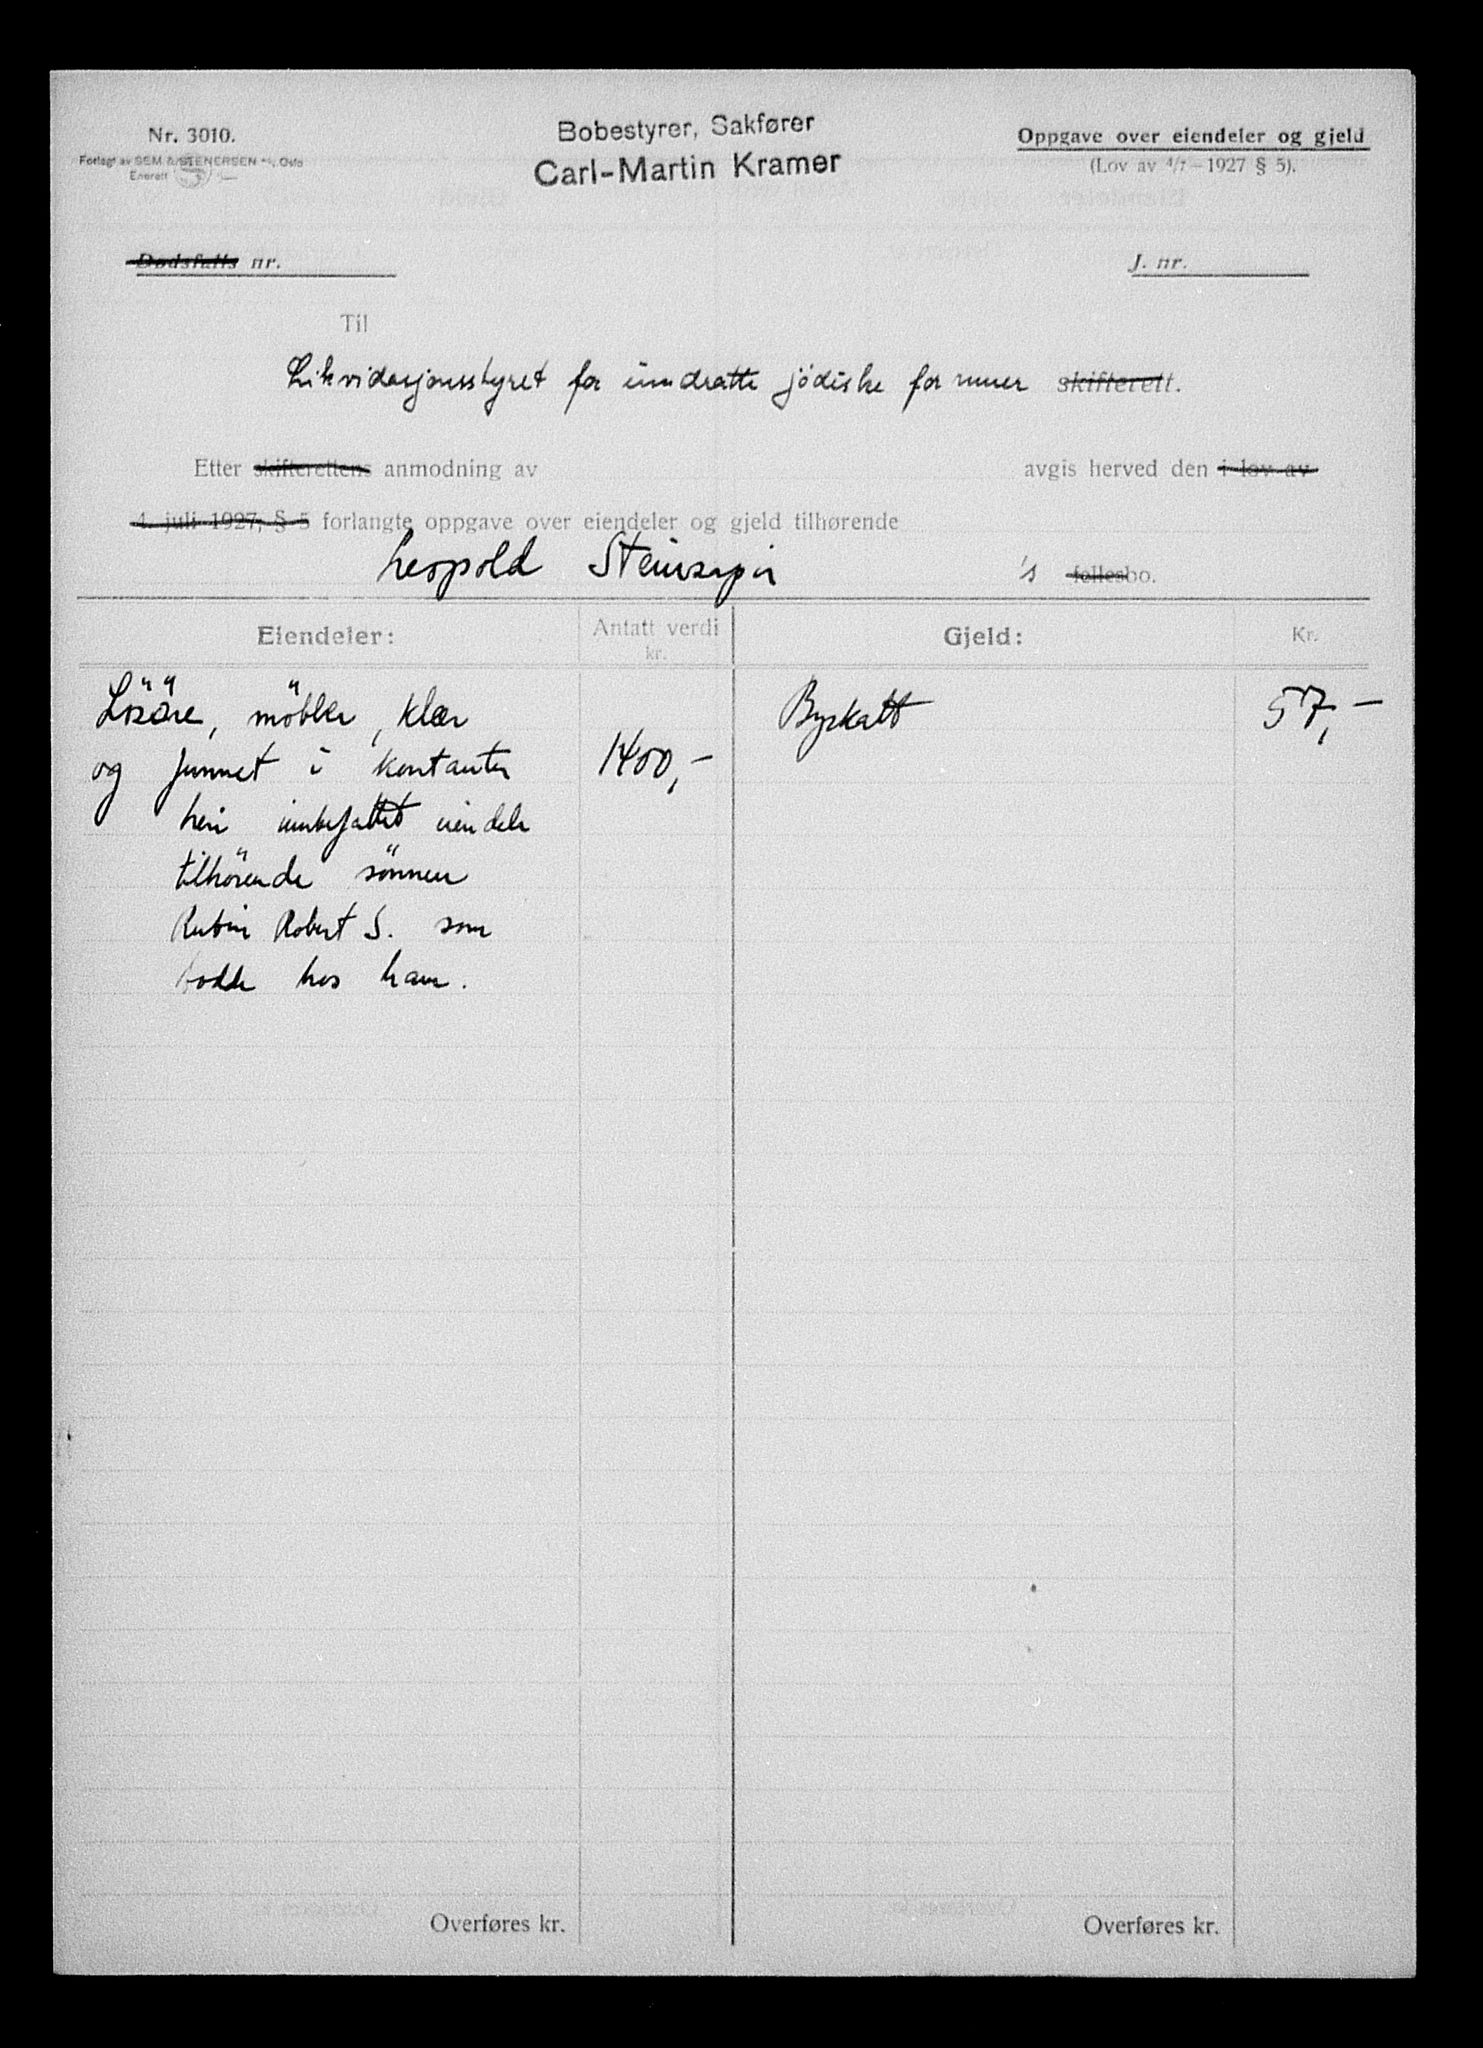 Nr. 3010.
Forlagt av SEM & STENERSEN A/S, Oslo
Enerett
Bobestyrer, Sakfører
Carl-Martin Kramer
Oppgave over eiendeler og gjeld
(Lov av 4/7-1927 § 5).
Dødsfalls nr.
J. nr.
Til
Likvidasjonsstyret for inndratte jödiske formuer skifterett.
Etter skifterettens anmodning av avgis herved den i lov av
4. juli 1927, § 5 forlangte oppgave over eiendeler og gjeld tilhørende
Leopold Steinsapir 's fellesbo.
Eiendeler: Antatt verdi kr. Gjeld: Kr.
Lösöre, möbler, klær Byskatt 57,-
og funnet i kontanter 1400,-
heri innbefattet eiendele
tilhörende sönnen
Rubin Robert S. som
bodde hos ham.
Overføres kr. Overføres kr.